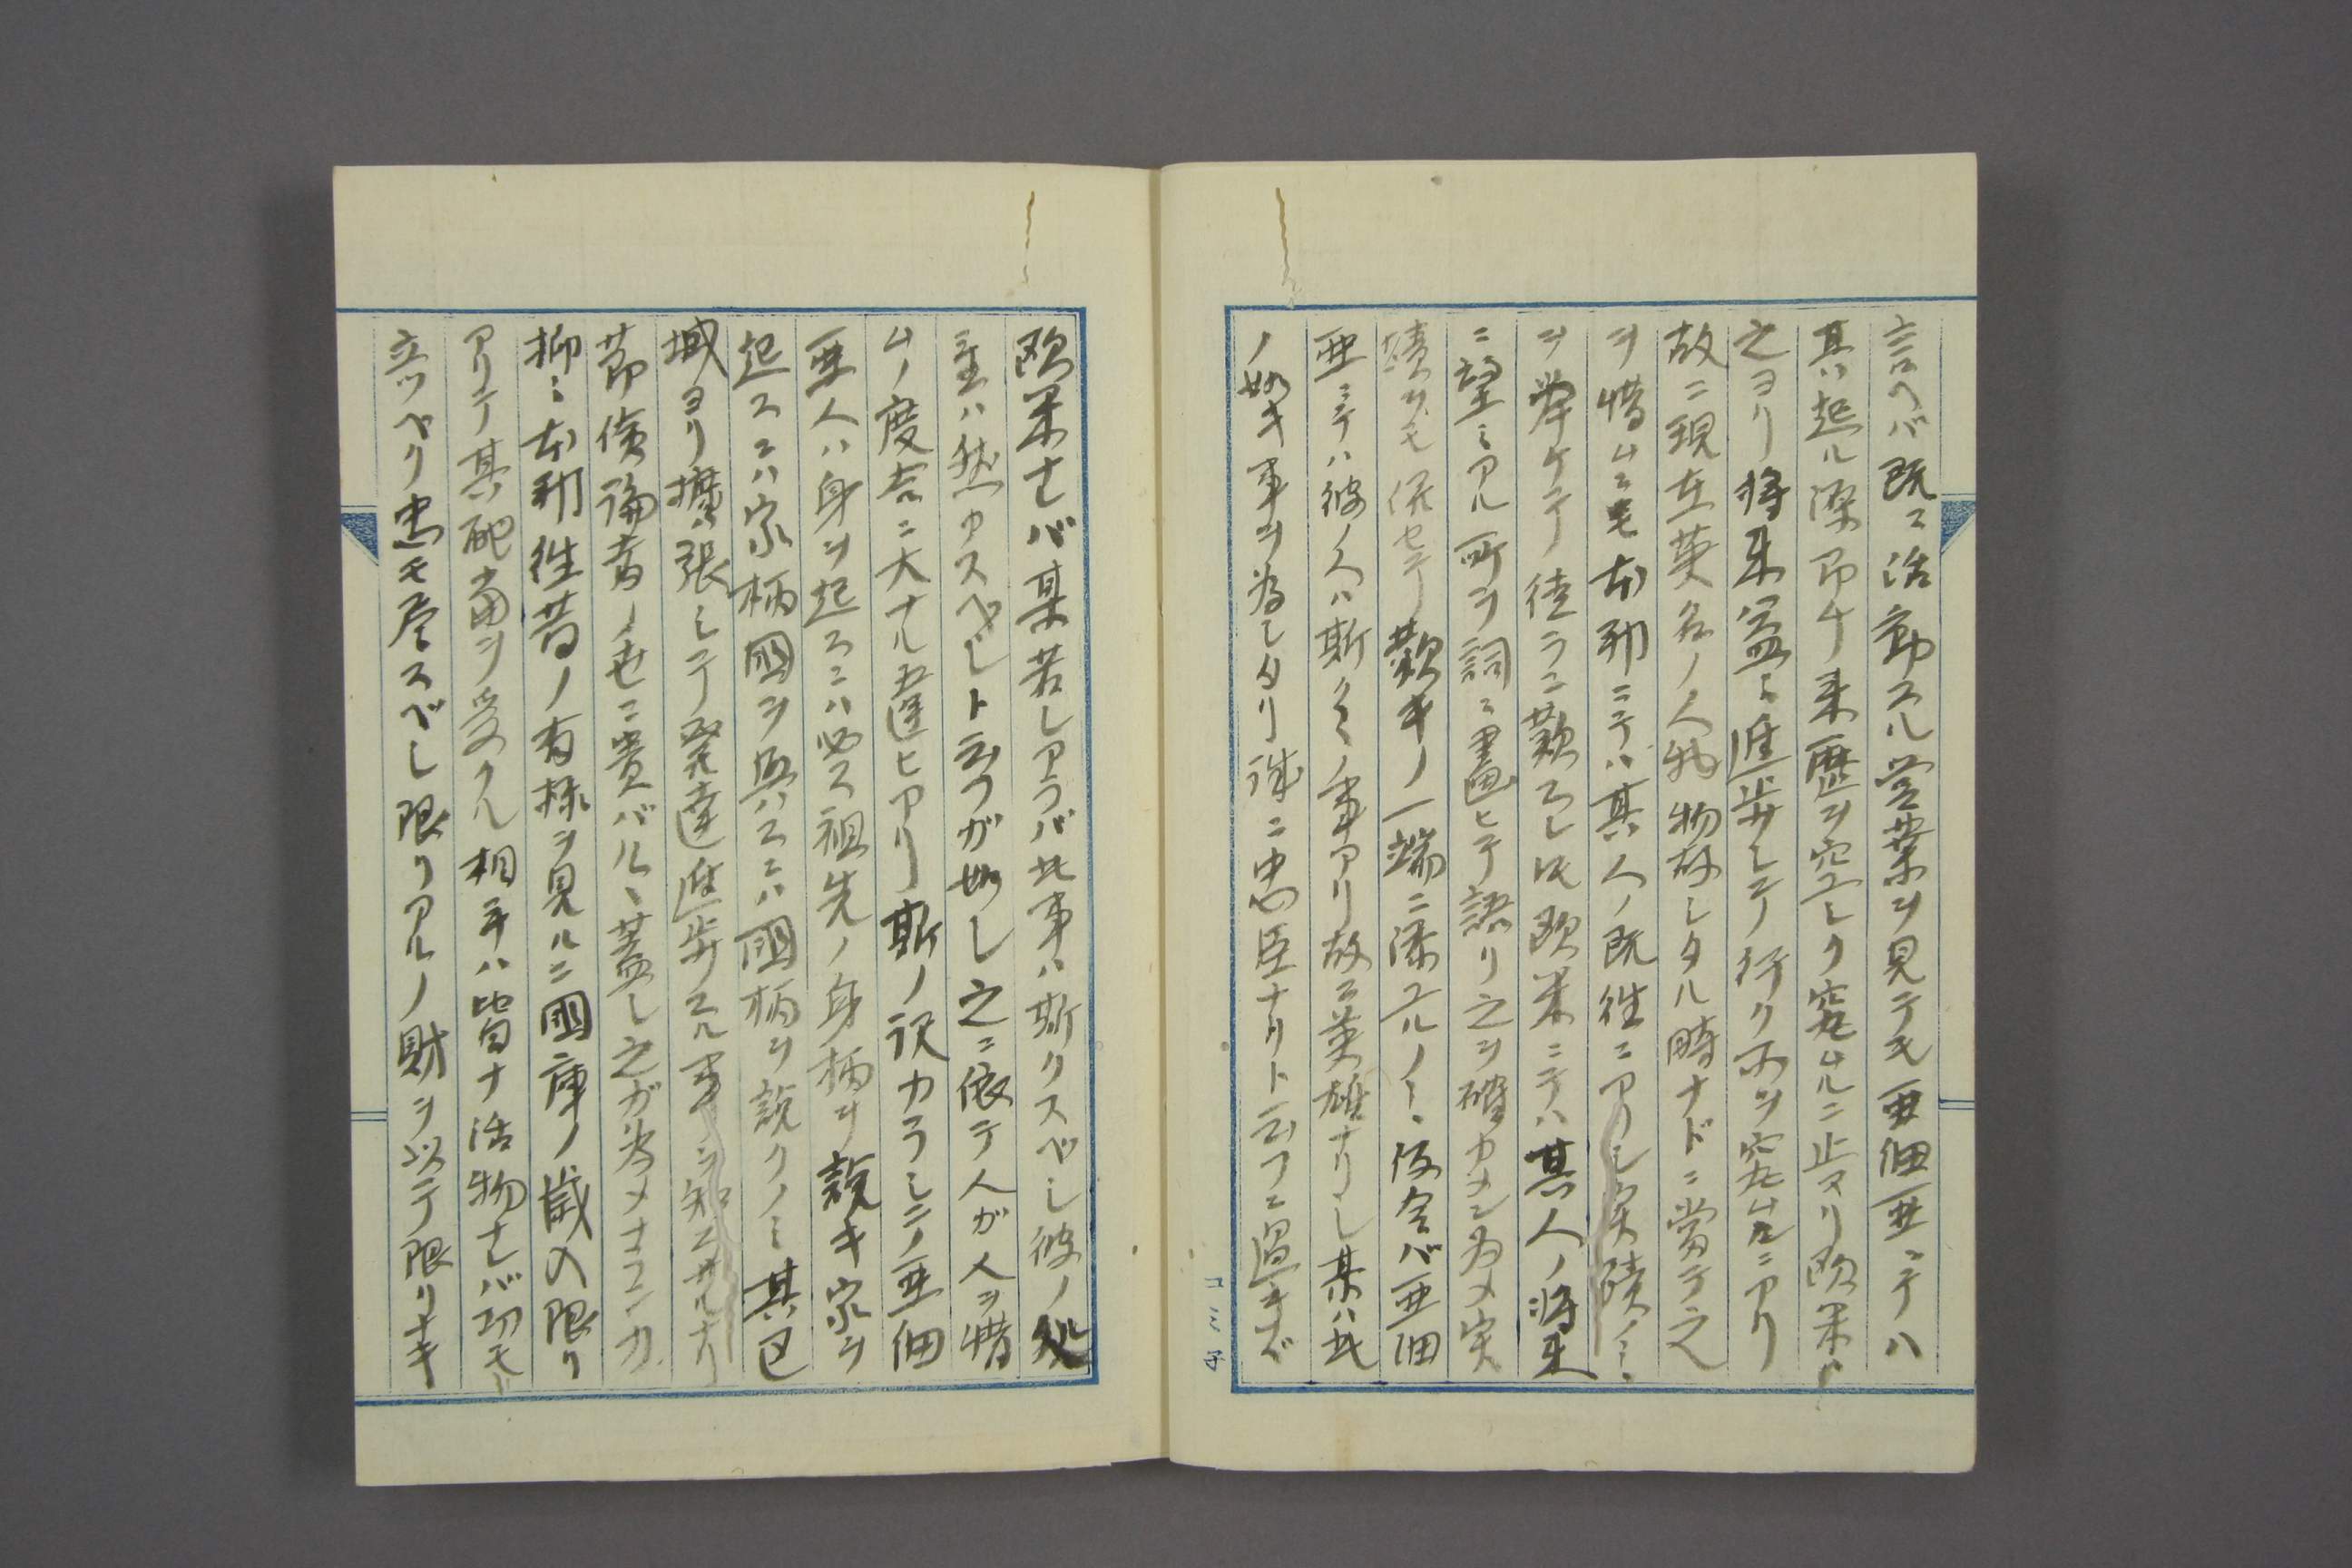 言ヘバ既ニ活動スル営業ヲ見テモ亜細亜ニテハ
其ハ起ル深即チ来歴ヲ空シク究ムルニ止マリ欧米ハ
之ヨリ将来益々進歩シテ行ク所ヲ究ムルニアリ
故ニ現在英名ノ人ガ物故シタル時ナドニ當テ之
ヲ惜ムニモ本邦ニテハ其人ノ既往ニアリシ実蹟ノミ
ヲ挙ケテ徒ラニ歎スレ𪜈欧米ニテハ其人ノ将来
ニ望ミアル所ヲ詞ニ画ヒテ語リ之ヲ確カメン為メ実
蹟ヲモ併セテ歎キノ一端ニ添ユルノミ、仮令バ亜細
亜ニテハ彼ノ人ハ斯クノ事アリ故ニ英雄ナリシ某ハ此
ノ如キ事ヲ為シタリ誠ニ忠臣ナリト云フニ過キズ
コミ子
欧米ナレバ某若シアラバ此事ハ斯クスベシ彼ノ処
置ハ然カスベシト云フガ如シ之ニ依テ人ガ人ヲ惜
ムノ度合ニ大ナル違ヒアリ斯ノ訳カラシテノ亜細
亜人ハ身ヲ起スニハ必ス祖先ノ身柄ヲ説キ家ヲ
起スニハ家柄國ヲ興スニハ國柄ヲ説クノミ其区
域ヨリ擴張シテ発達進歩スル事ヲ知ラザルナリ
節倹論者ノ世ニ貴バル、蓋シ之ガ為メナランカ
抑ミ本邦往昔ノ有様ヲ見ルニ國庫ノ歳入限リ
アリテ其配當ヲ受クル相手ハ皆ナ活物ナレバ功モ
立ツベク忠モ尽スベシ限リアルノ財ヲ以テ限リナキ